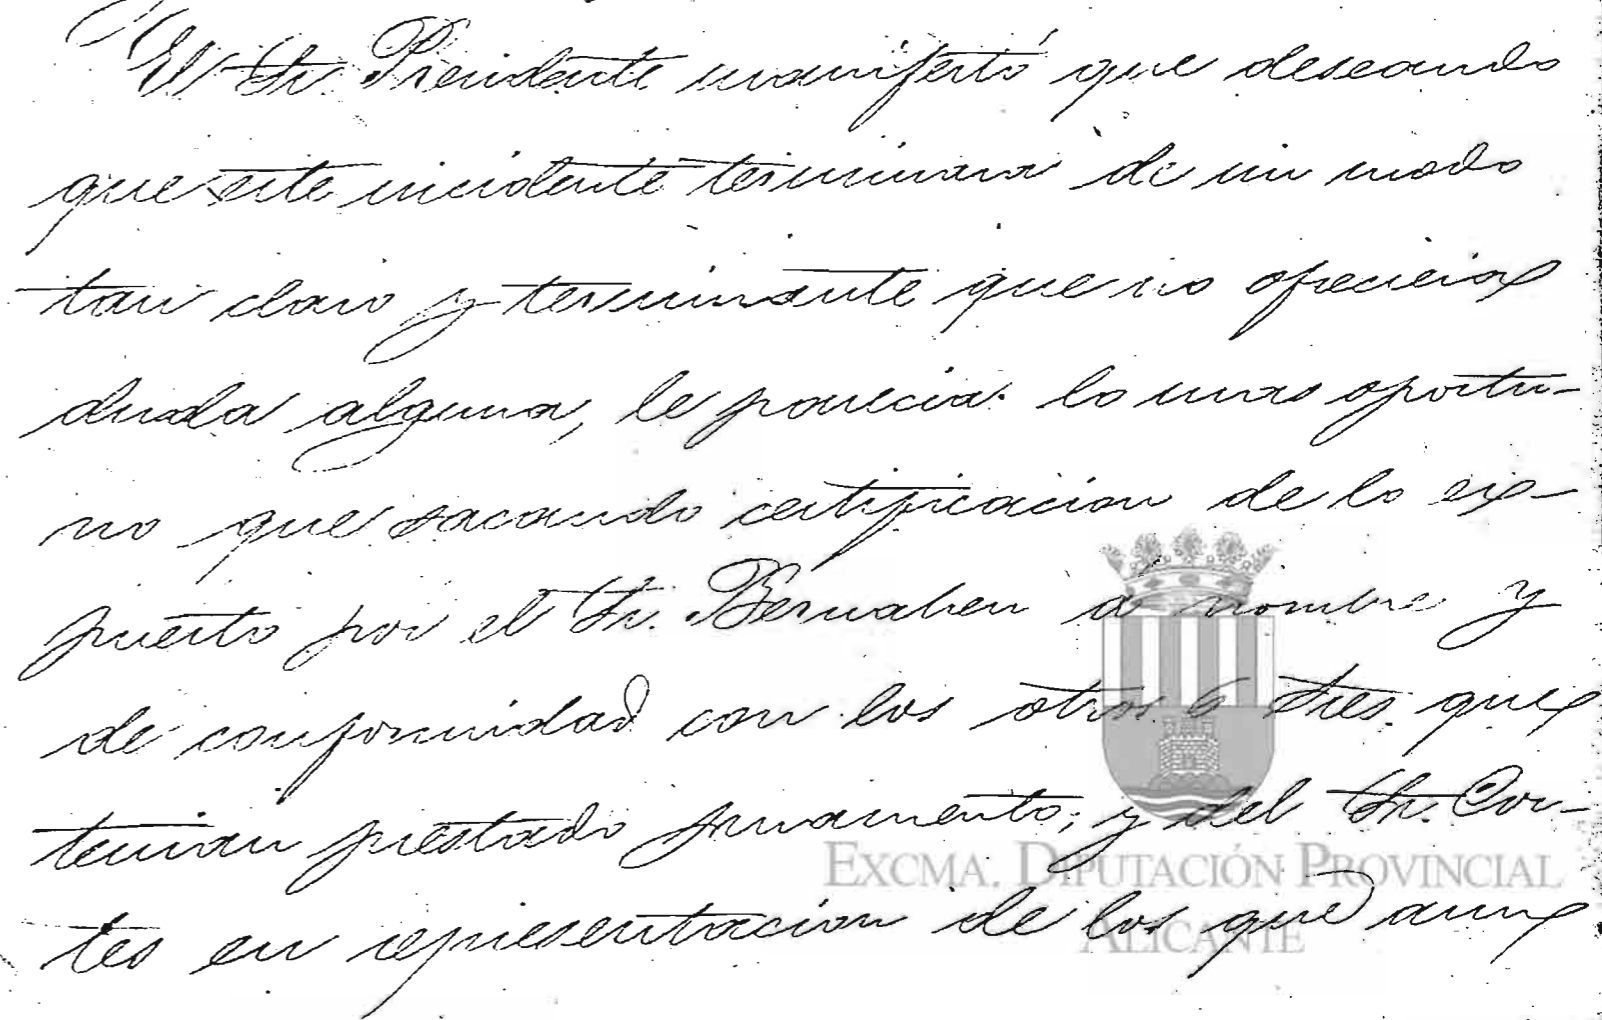 El Sr. Presidente manifestó que deseando
que este incidente terminara de un modo
tan claro y terminante que no ofreciera
duda alguna, le parecia lo mas oportu-
no que sacando certificacion de lo ex-
puesto por el Sr. Bernabeu a nombre y
de conformidad con los otros 6 Sres. que
tenian prestado juramento; y del Sr. Cor-
EXCMA. DIPUTACIÓN PROVINCIAL
tes en representacion de los que aun
ALICANTE